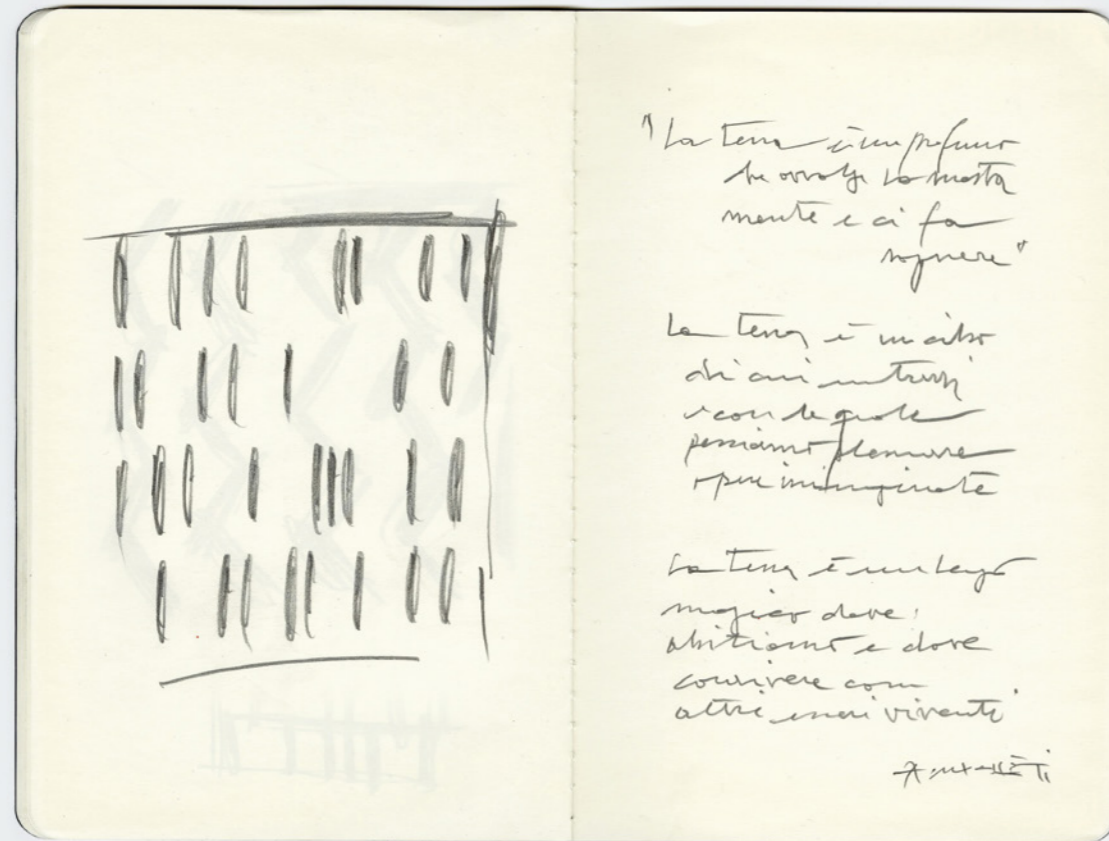 "La terra è un profumo
che avvolge la nostra
mente e ci fa
sognare"
La terra è un cibo
di cui nutrirsi
e con la quale
possiamo plasmare
opere immaginate
La terra è un luogo
magico dove
abitiamo e dove
convivere con
altri esseri viventi